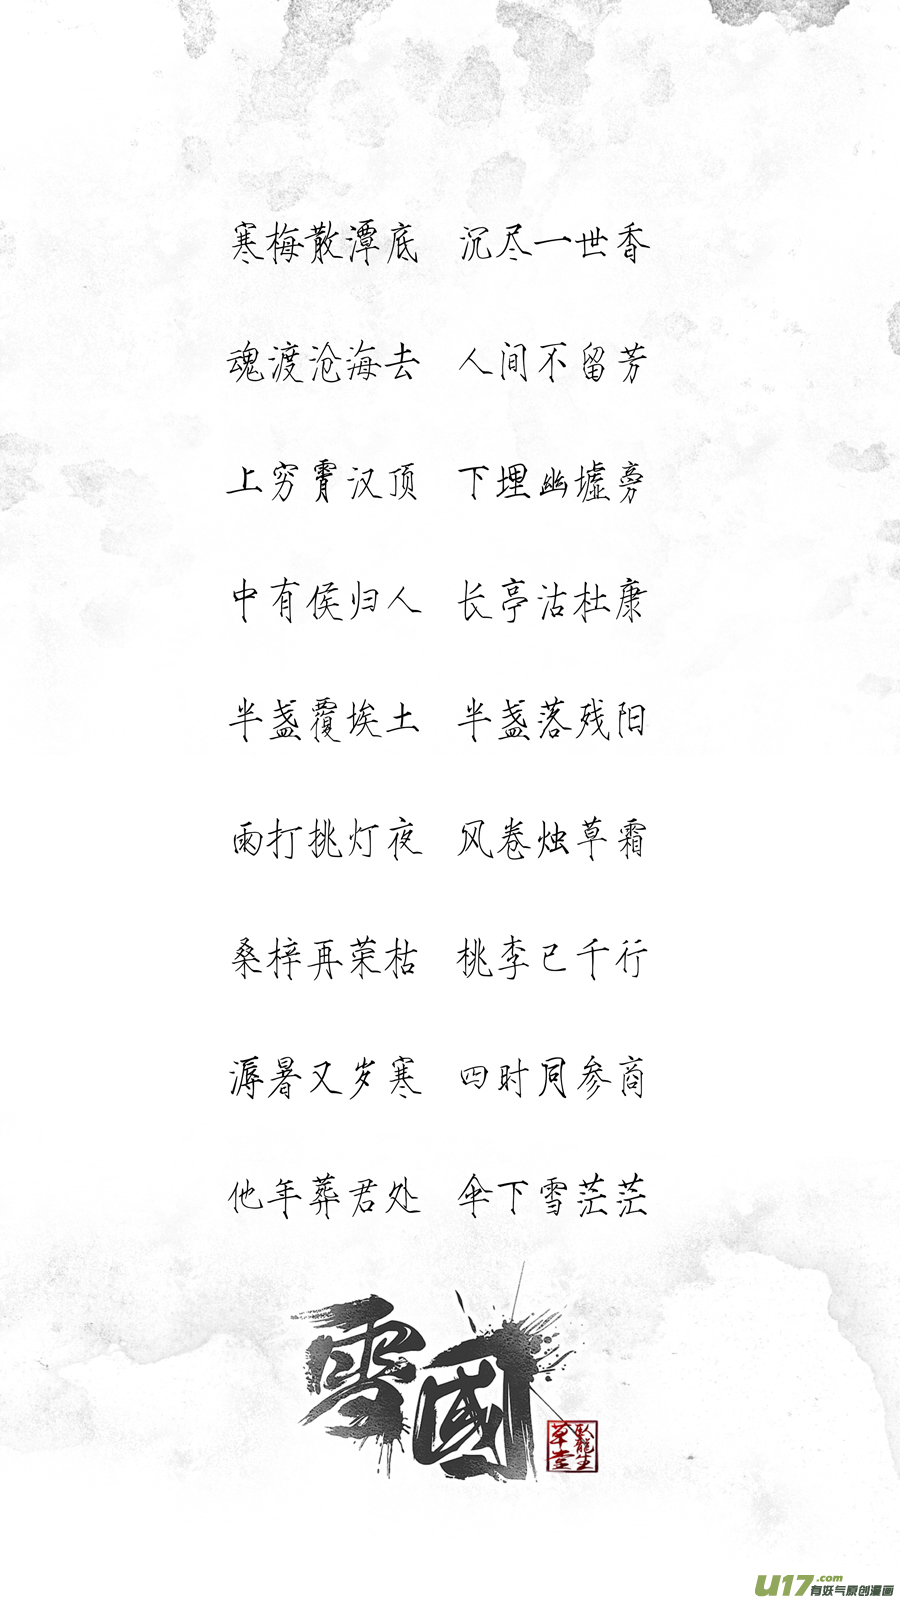 寒梅散潭底 沉尽一世香
魂渡沧海去 人间不留芳
上穷霄汉顶 下埋幽墟旁
中有侯归人 长亭沽杜康
半盏覆埃土 半盏落残阳
雨打挑灯夜 风卷烛草霜
桑梓再荣枯 桃李已千行
溽暑又岁寒 四时同参商
他年葬君处 伞下雪茫茫
雪國
卧龍生
草堂
U17.com
有妖气原创漫画